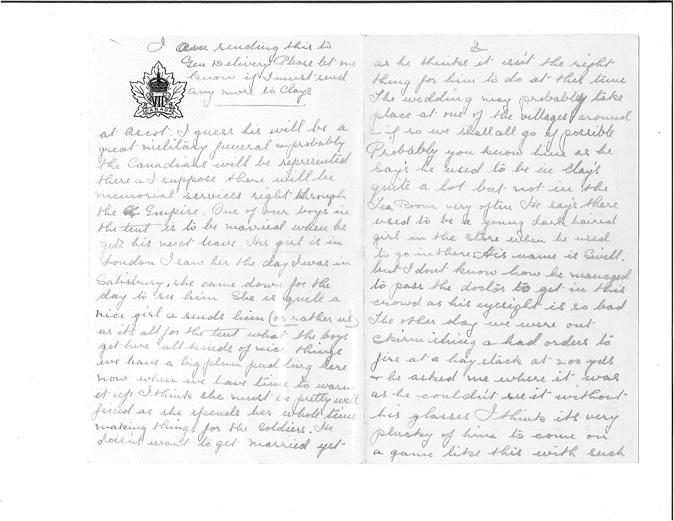 I am sending this to
Gen Delivery Please let me
know if I must send
any more to Clays
VIII
CANADA
at Ascot. I guess his will be a
great military funeral & probably
the Canadians will be represented
there & I suppose there will be
memorial services right through
the Empire. One of our boys in
the tent is to be married when he
gets his next leave. His girl is in
London I saw her the day I was in
Salisbury, she came down for the
day to see him She is quite a
nice girl & sends him (or rather us)
as its all for the tent what the boys
get here all kinds of nice things
we have a big plum pudding here
now when we have time to warm
it up. I think she must be pretty well
fixed as she spends her whole time
making things for the soldiers. He
doesn't want to get married yet
2
as he thinks it isn't the right
thing for him to do at this time
The wedding may probably take
place at one of the villages around
if so we shall all go if possible
Probably you know him as he
says he used to be in Clay's
quite a lot but not in the
Tea Room very often He says there
used to be a young dark haired
girl in the store when he used
to go in there. His name is
but I dont know how he managed
to pass the doctor to get in this
crowd as his eyesight is so bad
The other day we were out
skirmishing & had orders to
fire at a hay stack at 200 yds
& he asked me where it was
as he couldn't see it without
his glasses I think its very
plucky of him to come on
a game like this with such